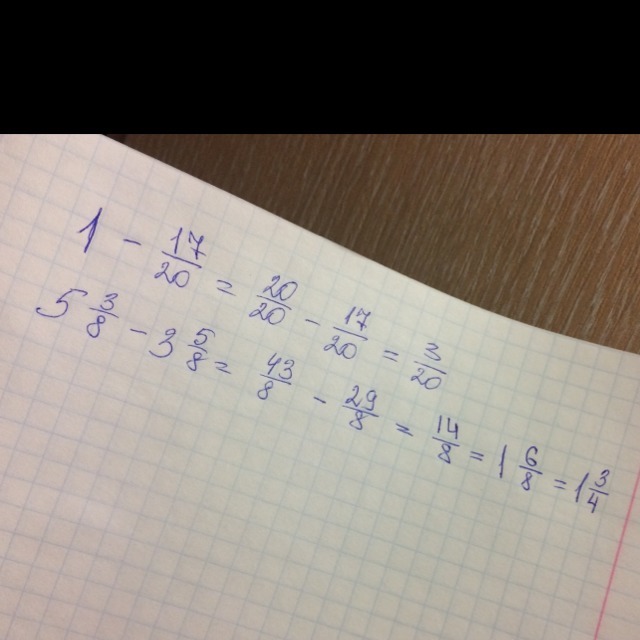 1 - 17/20 = 20/20 - 17/20 = 3/20
5 3/8 - 3 5/8 = 43/8 - 29/8 = 14/8 = 1 6/8 = 1 3/4